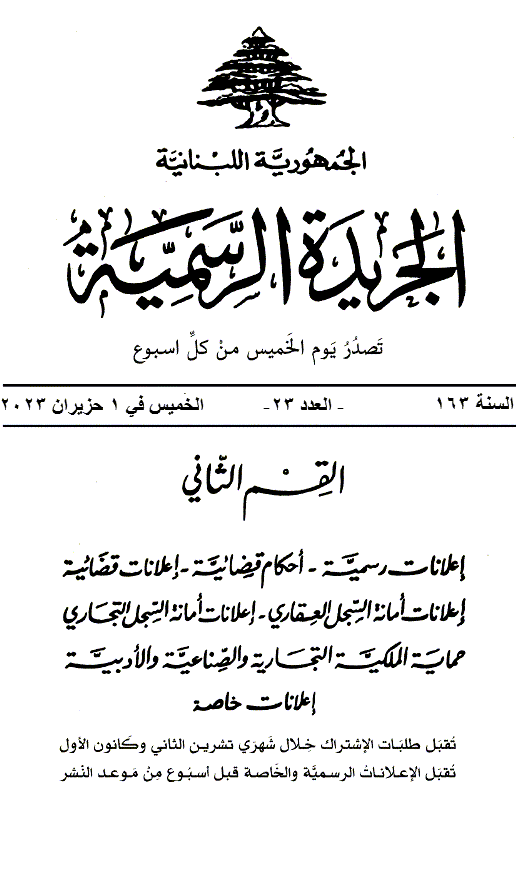 الجمهورية اللبنانية
الجريدة الرسمية
تصدر يوم الخميس من كل اسبوع
السنة ١٦٣ - العدد ٢٣ - الخميس في ١ حزيران ٢٠٢٣
القسم الثاني
إعلانات رسمية - أحكام قضائية - إعلانات قضائية
إعلانات أمانة السجل العقاري - إعلانات أمانة السجل التجاري
حماية الملكية التجارية والصناعية والأدبية
إعلانات خاصة
تقبل طلبات الإشتراك خلال شهري تشرين الثاني وكانون الأول
تقبل الإعلانات الرسمية والخاصة قبل أسبوع من موعد النشر